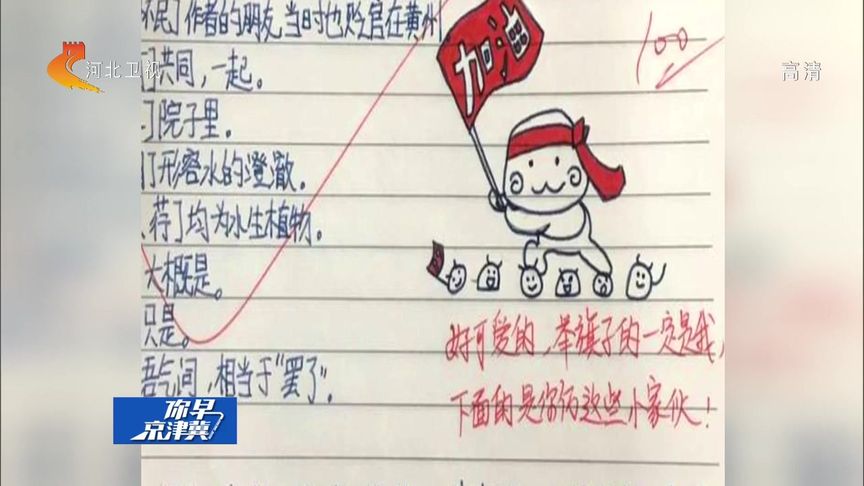 民]作者的朋友,当时也贬官在黄州
]共同,一起。
]院子里。
]形容水的澄澈。
、荇]均为水生植物。
大概是。
只是。
语气词,相当于“罢了”。
加油
100
好可爱的,举旗子的一定是我,
下面的是你们这些小家伙!
河北卫视
高清
你早
京津冀